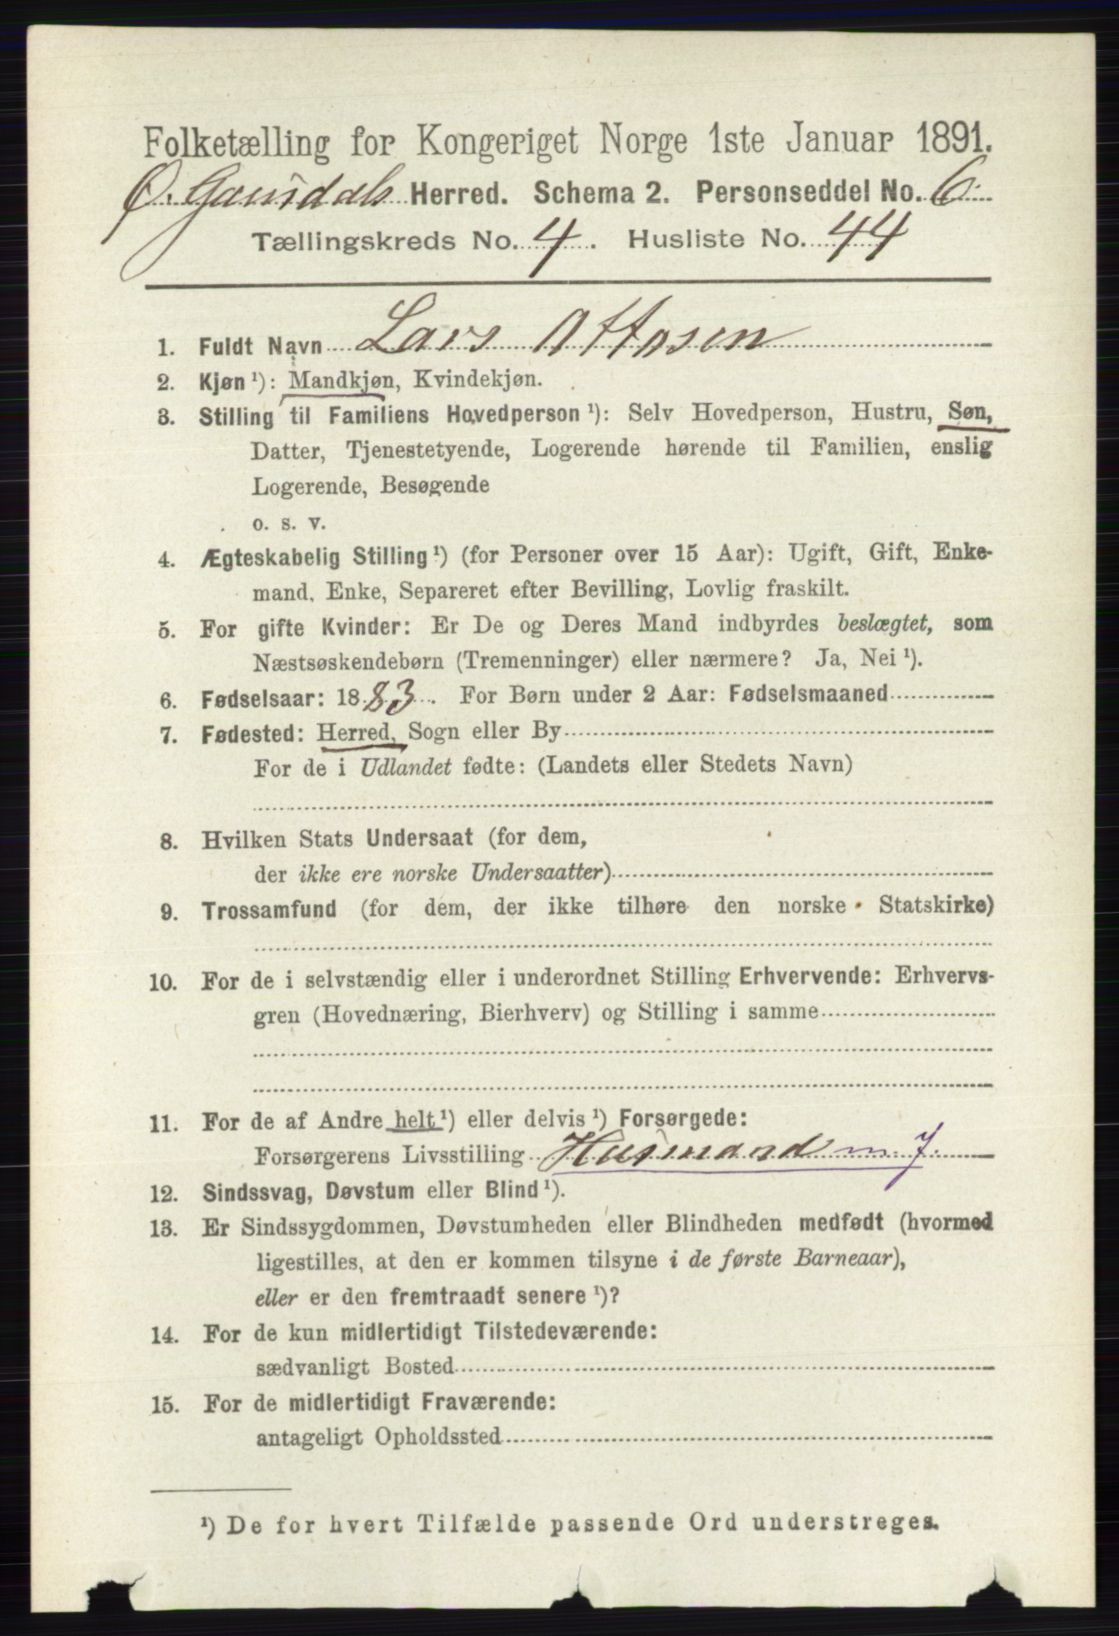 Folketælling for Kongeriget Norge 1ste Januar 1891.
Ø. Gausdals Herred. Schema 2. Personseddel No. 6.
Tællingskreds No. 4. Husliste No. 44
1. Fuldt Navn Lars Ottosen
2. Kjøn ¹): Mandkjøn, Kvindekjøn.
3. Stilling til Familiens Hovedperson ¹): Selv Hovedperson, Hustru, Søn,
Datter, Tjenestetyende, Logerende hørende til Familien, enslig
Logerende, Besøgende
o. s. v.
4. Ægteskabelig Stilling ¹) (for Personer over 15 Aar): Ugift, Gift, Enke-
mand, Enke, Separeret efter Bevilling, Lovlig fraskilt.
5. For gifte Kvinder: Er De og Deres Mand indbyrdes beslægtet, som
Næstsøskendebørn (Tremenninger) eller nærmere? Ja, Nei ¹).
6. Fødselsaar: 1883. For Børn under 2 Aar: Fødselsmaaned
7. Fødested: Herred, Sogn eller By
For de i Udlandet fødte: (Landets eller Stedets Navn)
8. Hvilken Stats Undersaat (for dem,
der ikke ere norske Undersaatter)
9. Trossamfund (for dem, der ikke tilhøre den norske Statskirke)
10. For de i selvstændig eller i underordnet Stilling Erhvervende: Erhvervs-
gren (Hovednæring, Bierhverv) og Stilling i samme
11. For de af Andre helt ¹) eller delvis ¹) Forsørgede:
Forsørgerens Livsstilling Husmand m. J.
12. Sindssvag, Døvstum eller Blind ¹).
13. Er Sindssygdommen, Døvstumheden eller Blindheden medfødt (hvormed
ligestilles, at den er kommen tilsyne i de første Barneaar),
eller er den fremtraadt senere ¹)?
14. For de kun midlertidigt Tilstedeværende:
sædvanligt Bosted
15. For de midlertidigt Fraværende:
antageligt Opholdssted
¹) De for hvert Tilfælde passende Ord understreges.